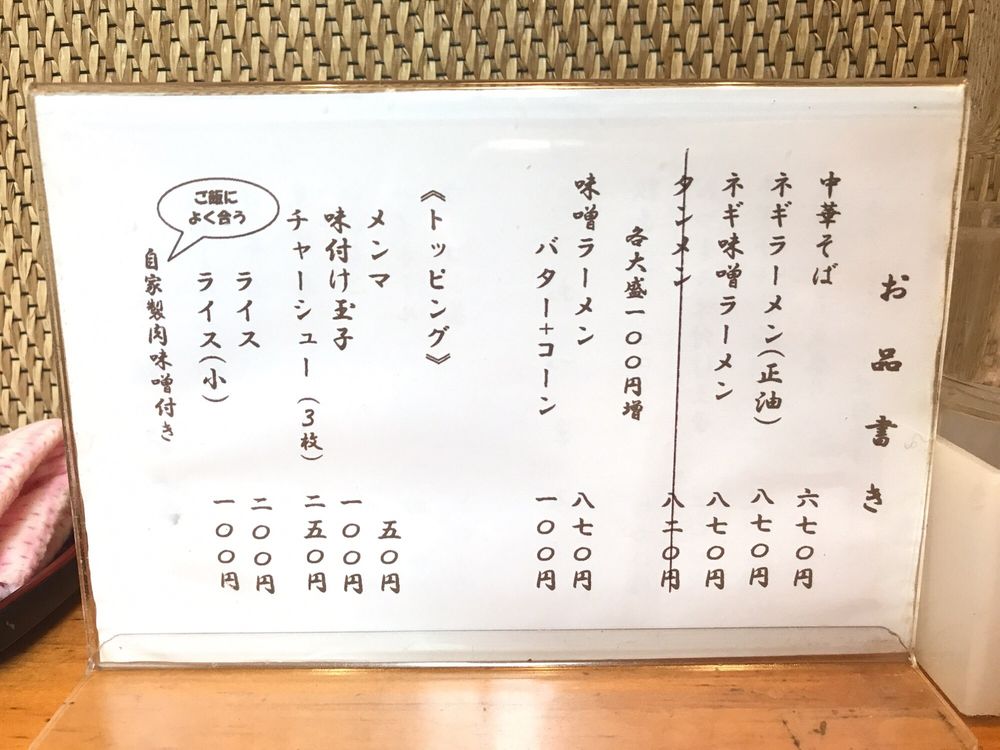 お品書き
中華そば 六七〇円
ネギラーメン(正油) 八七〇円
ネギ味噌ラーメン 八七〇円
タンメン 八二〇円
各大盛一〇〇円増
味噌ラーメン 八七〇円
バター+コーン 一〇〇円
《トッピング》
メンマ 五〇円
味付け玉子 一〇〇円
チャーシュー(3枚) 二五〇円
ライス 二〇〇円
ライス(小) 一〇〇円
自家製肉味噌付き
ご飯に
よく合う